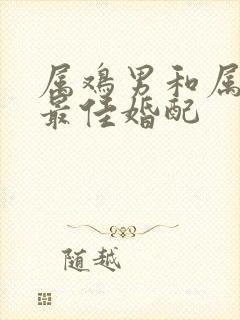 属鸡男和属
最佳婚配
随越